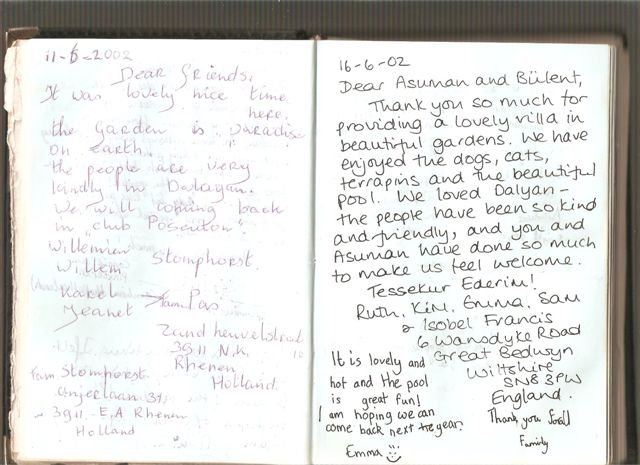 11-6-2002
Dear friends,
It was lovely nice time
here.
the garden is "paradise
on earth.
the people are very
kindly in Dalayan.
We will coming back
in "club Poseidon"
Willemien
Willem Stomphorst.
Karel
Jeanet fam Pas
Zandheuvelstraat 10
3911 N.K.
Rhenen
Holland
Fam Stomphorst.
Anjerlaan 34
3911-E.A Rhenen
Holland
16-6-02
Dear Asuman and Bülent,
Thank you so much for
providing a lovely villa in
beautiful gardens. We have
enjoyed the dogs, cats,
terrapins and the beautiful
pool. We loved Dalyan -
the people have been so kind
and friendly, and you and
Asuman have done so much
to make us feel welcome.
Tessekur Ederim!
Ruth, Kim, Emma, Sam
& Isobel Francis
6 Wansdyke Road
Great Bedwyn
Wiltshire
SN8 3PW
England.
It is lovely and
hot and the pool
is great fun!
I am hoping we can
come back next year.
Emma
Thank you
Family